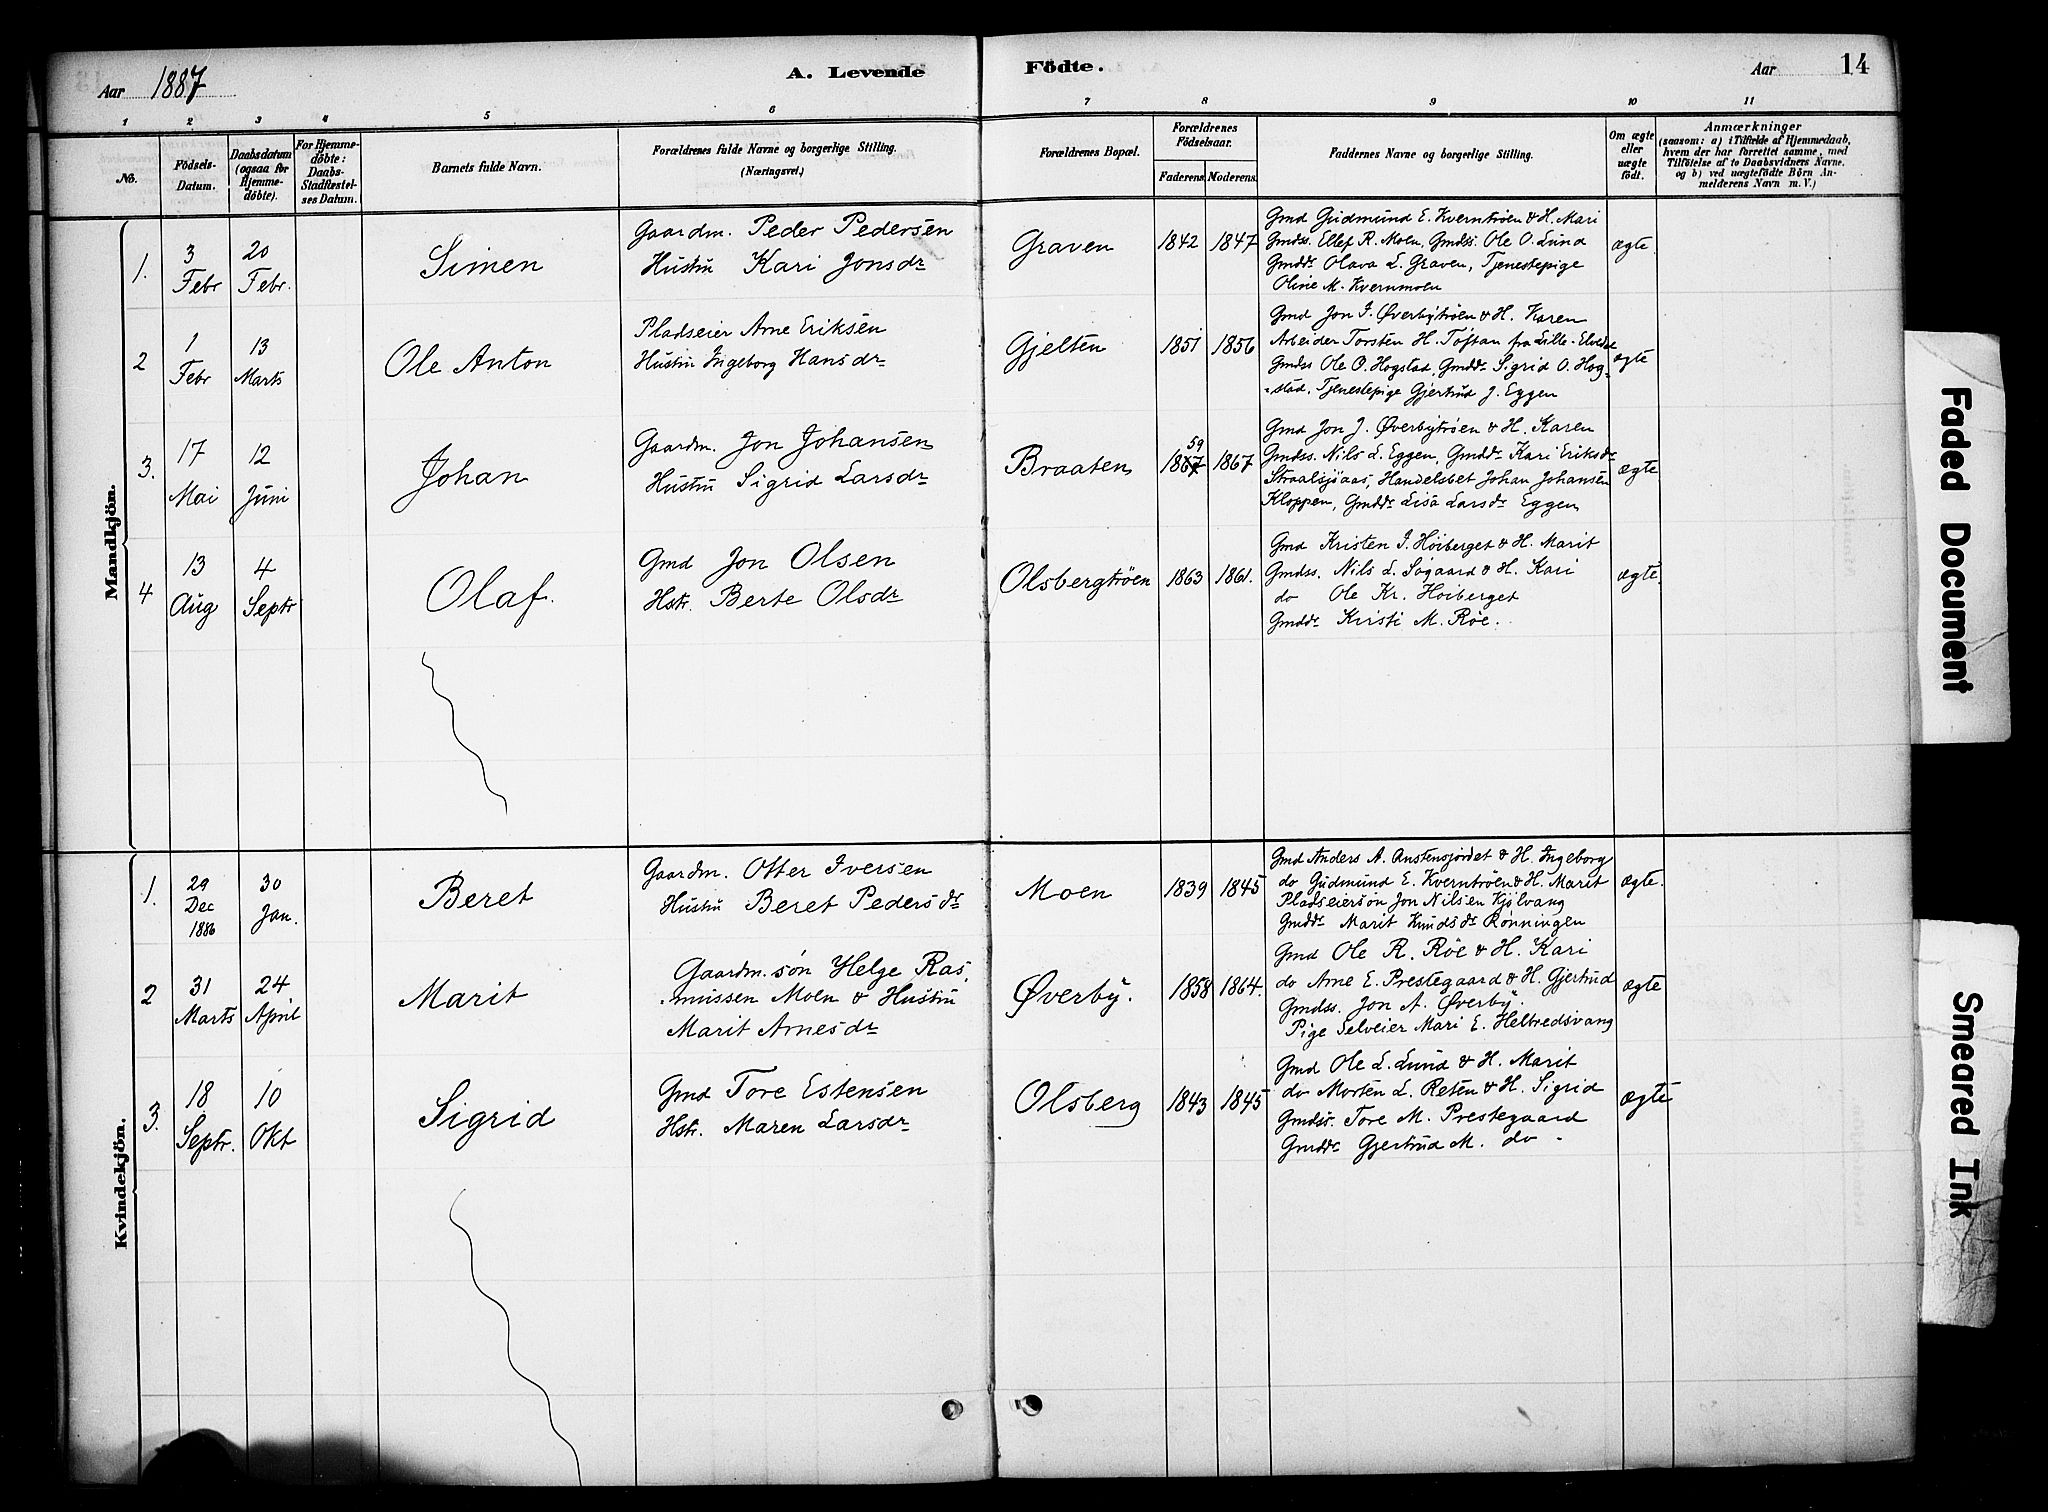 Aar 1887
A. Levende Födte.
Aar 14
1 2 3 4 5 6 7 8 9 10 11
No.
Födsels-Datum.
Daabsdatum (ogsaa for Hjemmedöbte).
For Hjemmedöbte: Daabs-Stadfæstelses Datum.
Barnets fulde Navn.
Forældrenes fulde Navne og borgerlige Stilling.
(Næringsvei.)
Forældrenes Bopæl.
Forældrenes Födselsaar.
Faderens. Moderens.
Faddernes Navne og borgerlige Stilling.
Om ægte eller uægte födt.
Anmærkninger
(saasom: a) i Tilfælde af Hjemmedaab,
hvem der har forrettet samme, med
Tilföielse af to Daabsvidners Navne,
og b) ved uægtefödte Börn Anmelderens Navn m. V.)
Mandkjön.
1. 3 Febr 20 Febr. Simen
Gaardm. Peder Pedersen
Hustru Kari Jonsdr
Graven 1842 1847
Gmd Gudmund E. Kverntröen & H. Mari
Gmdss. Ellef R. Moen, Gmdss. Ole O. Lund
Gmddr Olava L. Graven, Tjenestepige
Oline M. Kvernmoen
ægte.
2 1 Febr 13 Marts Ole Anton
Pladseier Arne Eriksen
Hustru Ingeborg Hansdr
Gjelten 1851 1856
Gmd Jon J. Øverbytröen & H. Karen
Arbeider Torsten H. Toftan fra Lille-Elvedal
Gmdss Ole O. Hogstad, Gmddr Sigrid O. Hog-
-stad. Tjenestepige Gjertrud J. Eggen
ægte
3. 17 Mai 12 Juni Johan
Gaardm. Jon Johansen
Hustru Sigrid Larsdr
Braaten 59 1867 1867
Gmd Jon J. Øverbytröen & H. Karen
Gmdss. Nils L. Eggen, Gmddr Kari Eriksdr
Straalsjöaas, Handelsbet Johan Johansen
Kloppen, Gmddr Lisa Larsdr Eggen
ægte
4 13 Aug 4 Septr Olaf.
Gmd Jon Olsen
Hstr. Berte Olsdr
Olsbergtröen 1863 1861.
Gmd Kristen J. Höiberget & H. Marit
Gmdss. Nils L. Sögaard & H. Kari
do Ole Kr. Höiberget
Gmddr Kirsti M. Röe.
ægte.
Kvindekjön.
1. 29 Dec 1886 30 Jan. Beret
Gaardm. Otter Iversen
Hustru Beret Pedersdr
Moen 1839 1845
Gmd Anders A. Austensjordet & H. Ingeborg
do Gudmund E. Kverntröen & H. Marit
Pladseiersön Jon Nilsen Kjölvang
Gmddr Marit Knudsdr Rönningen
ægte.
2 31 Marts 24 April Marit
Gaardm. sön Helge Ras-
mussen Moen & Hustru
Marit Arnesdr
Øverby. 1858 1864.
Gmd Ole R. Röe & H. Kari
do Arne E. Prestegaard & H. Gjertrud
Gmdss. Jon A. Øverby.
Pige Selveier Mari E. Heltredsvang
ægte
3. 18 Septr. 10 Okt Sigrid
Gmd Tore Estensen
Hstr. Maren Larsdr
Olsberg 1843 1845
Gmd Ole L. Lund & H. Marit
do Morten L. Reten & H. Sigrid
Gmdss. Tore M. Prestegaard
Gmddr Gjertrud M. do -
ægte
Faded Document
Smeared Ink